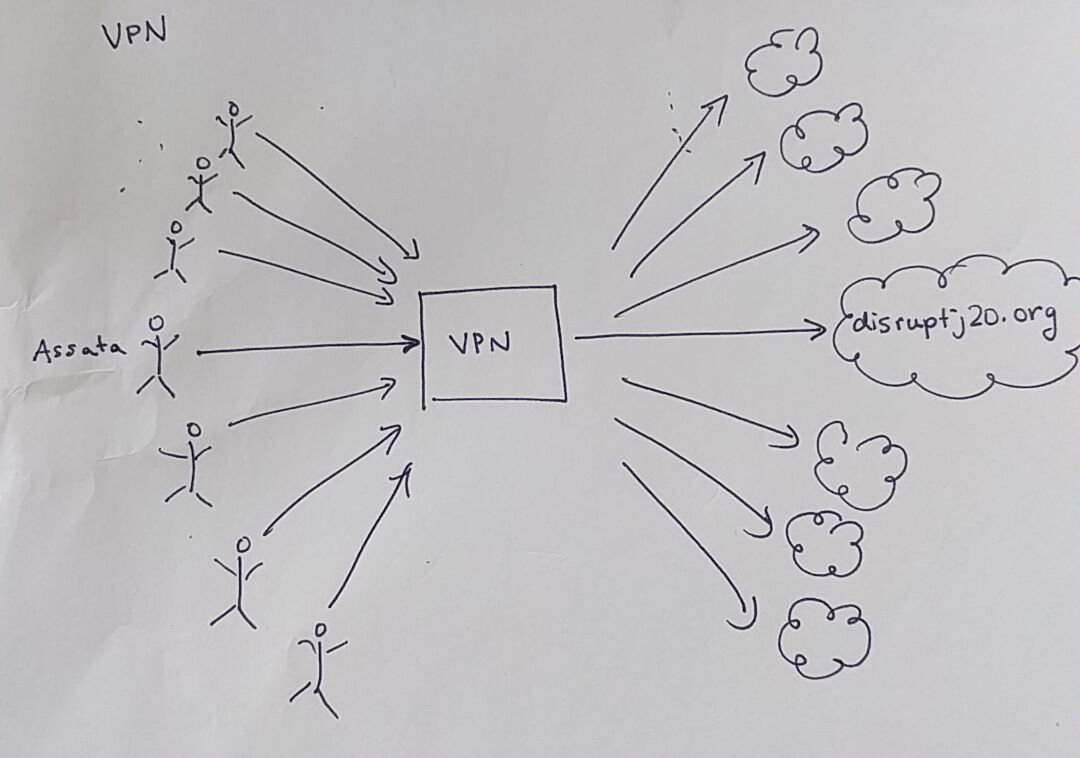 VPN
Assata
VPN
disruptj20.org